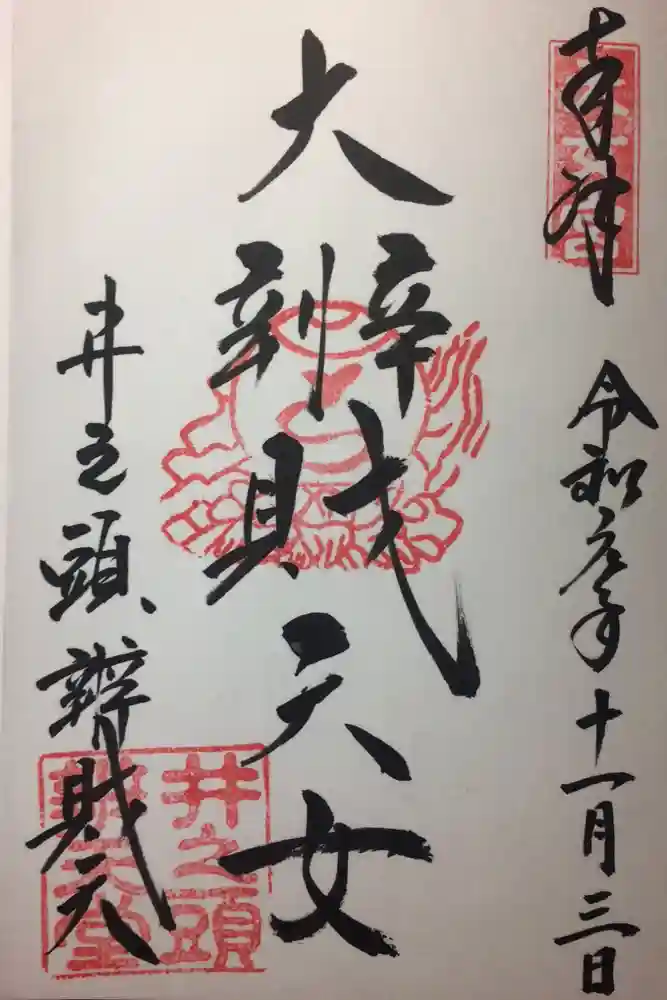 奉拝
令和元年十一月三日
大辨財天女
井之頭辨財天
井之頭
辨天堂